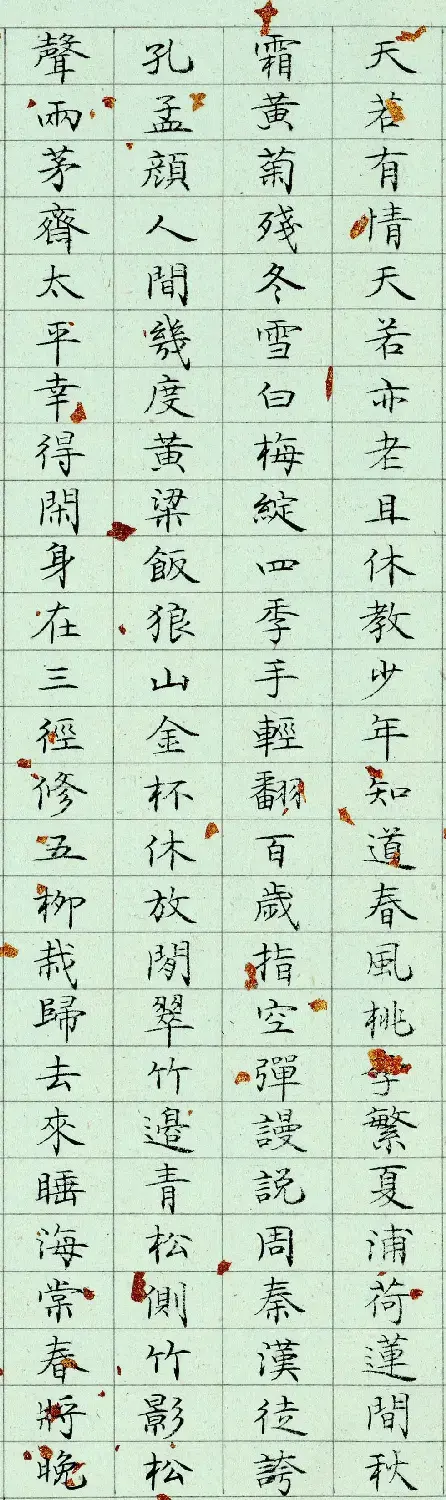 天若有情天若亦老且休教少年知道春風桃李繁夏浦荷蓮間秋
霜黃菊殘冬雪白梅綻四季手輕翻百歲指空彈謾説周秦漢徒誇
孔孟顏人間幾度黃粱飯狼山金杯休放閒翠竹邊青松側竹影松
聲兩茅齋太平幸得閑身在三徑修五柳栽歸去來睡海棠春將晚